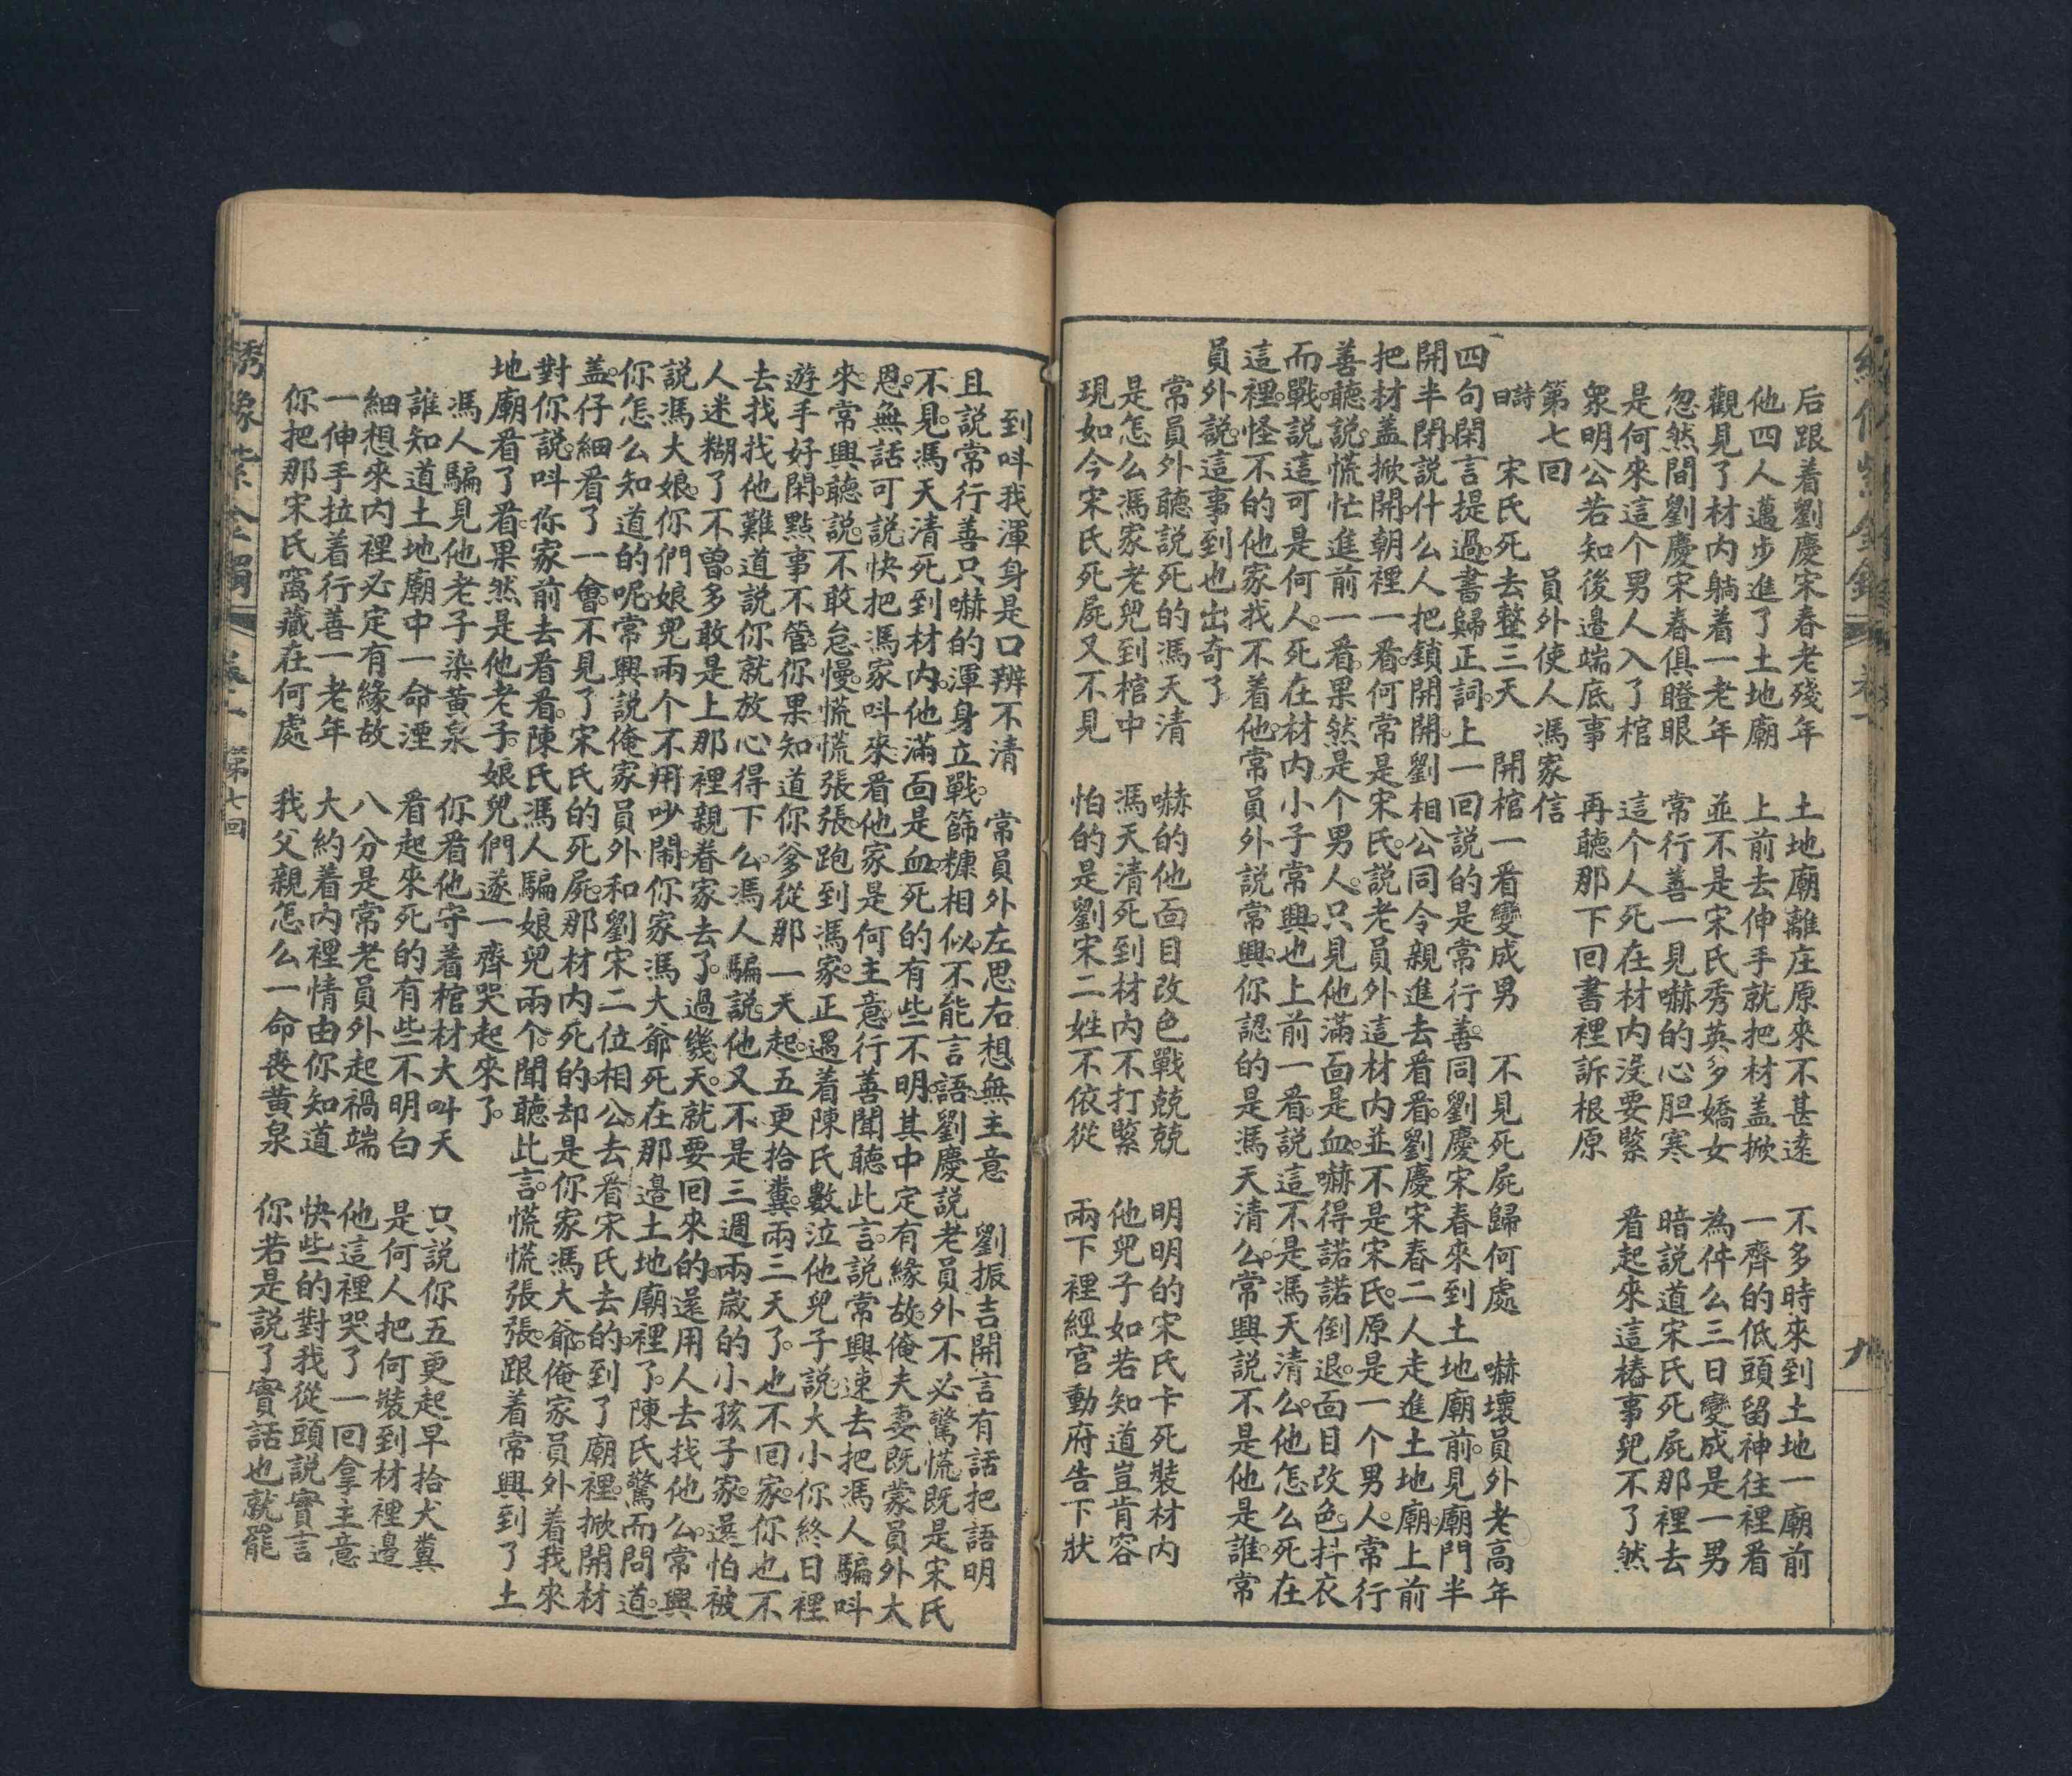 后跟着劉慶宋春老殘年　土地廟離庄原來不甚遠　不多時來到土地一廟前
他四人邁步進了土地廟　上前去伸手就把材盖掀　一齊的低頭留神往裡看
觀見了材內躺着一老年　並不是宋氏秀英多嬌女　為什么三日變成是一男
忽然間劉慶宋春俱瞪眼　常行善一見嚇的心胆寒　暗說道宋氏死屍那裡去
是何來這个男人入了棺　這个人死在材內沒要緊　看起來這樁事兒不了然
衆明公若知後邊端底事　再聽那下回書裡訴根原
第七回　員外使人馮家信
詩曰　宋氏死去整三天　開棺一看變成男　不見死屍歸何處　嚇壞員外老高年
四句閑言提過。書歸正詞。上一回說的是常行善。同劉慶宋春來到土地廟前。見廟門半
開半閉。說什么人把鎖開開。劉相公同令親進去看看。劉慶宋春二人走進土地廟。上前
把材盖掀開。朝裡一看。何常是宋氏。說老員外這材內並不是宋氏。原是一个男人。常行
善聽說。慌忙進前一看。果然是个男人。只見他滿面是血。嚇得諾諾倒退。面目改色。抖衣
而戰。說這可是何人。死在材內。小子常興。也上前一看。說這不是馮天清么。他怎么死在
這裡。怪不的他家找不着他。常員外說常興。你認的是馮天清么。常興說不是他是誰。常
員外說。這事到也出奇了。
常員外聽說死的馮天清　嚇的他面目改色戰兢兢　明明的宋氏卡死裝材內
是怎么馮家老兒到棺中　馮天清死到材內不打緊　他兒子如若知道豈肯容
現如今宋氏死屍又不見　怕的是劉宋二姓不依從　兩下裡經官動府告下狀
到呌我渾身是口辨不清　常員外左思右想無主意　劉振吉開言有話把語明
且說常行善只嚇的渾身立戰。篩糠相似。不能言語。劉慶說老員外不必驚慌。既是宋氏
不見。馮天清死到材內。他滿面是血。死的有些不明。其中定有緣故。俺夫妻既蒙員外大
恩。無話可說。快把馮家呌來。看他家是何主意。行善聞聽此言。說常興速去把馮人騙呌
來。常興聽說。不敢怠慢。慌慌張張。跑到馮家。正遇着陳氏數泣他兒子。說大小你終日裡
遊手好閑。點事不管。你果知道你爹從那一天起。五更拾糞。兩三天了。也不回家。你也不
去找找他。難道說你就放心得下么。馮人騙說。他又不是三週兩歲的小孩子家。還怕被
人迷糊了不曾。多敢是上那裡親眷家去了。過幾天。就要回來的。還用人去找他么。常興
說馮大娘。你們娘兒兩个不用吵鬧。你家馮大爺死在那邊土地廟裡了。陳氏驚而問道。
你怎么知道的呢。常興說俺家員外和劉宋二位相公去看宋氏去的。到了廟裡。掀開材
盖。仔細看了一會。不見了宋氏的死屍。那材內死的。却是你家馮大爺。俺家員外着我來
對你說。呌你家前去看看。陳氏馮人騙娘兒兩个。聞聽此言。慌慌張張。跟着常興到了土
地廟看了。看果然是他老子。娘兒們遂一齊哭起來了。
馮人騙見他老子染黃泉　你看他守着棺材大呌天　只說你五更起早拾犬糞
誰知道土地廟中一命湮　看起來死的有些不明白　是何人把何裝到材裡邊
細想來內裡必定有緣故　八分是常老員外起禍端　他這裡哭了一回拿主意
一伸手拉着行善一老年　大約着內裡情由你知道　快些的對我從頭說實言
你把那宋氏窩藏在何處　我父親怎么一命喪黃泉　你若是說了實話也就罷
第七回